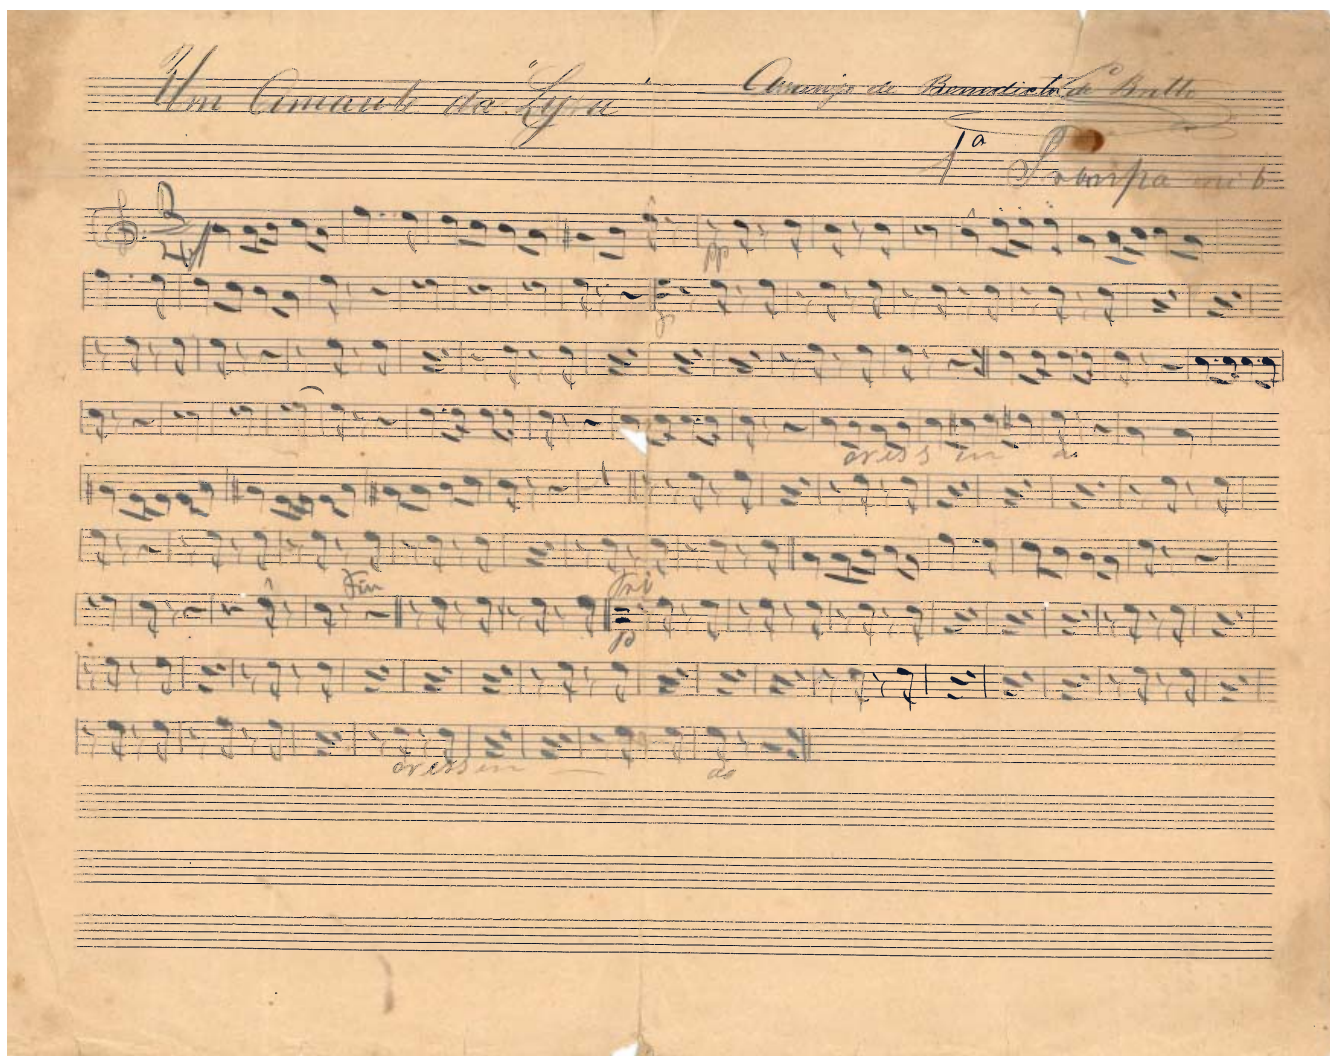 Um Amante da "Lyra" Arranjo de Benedicto de Britto
1ª Trompa mi b
pp
f
cress en do
Fin Tri
p
cressen — do